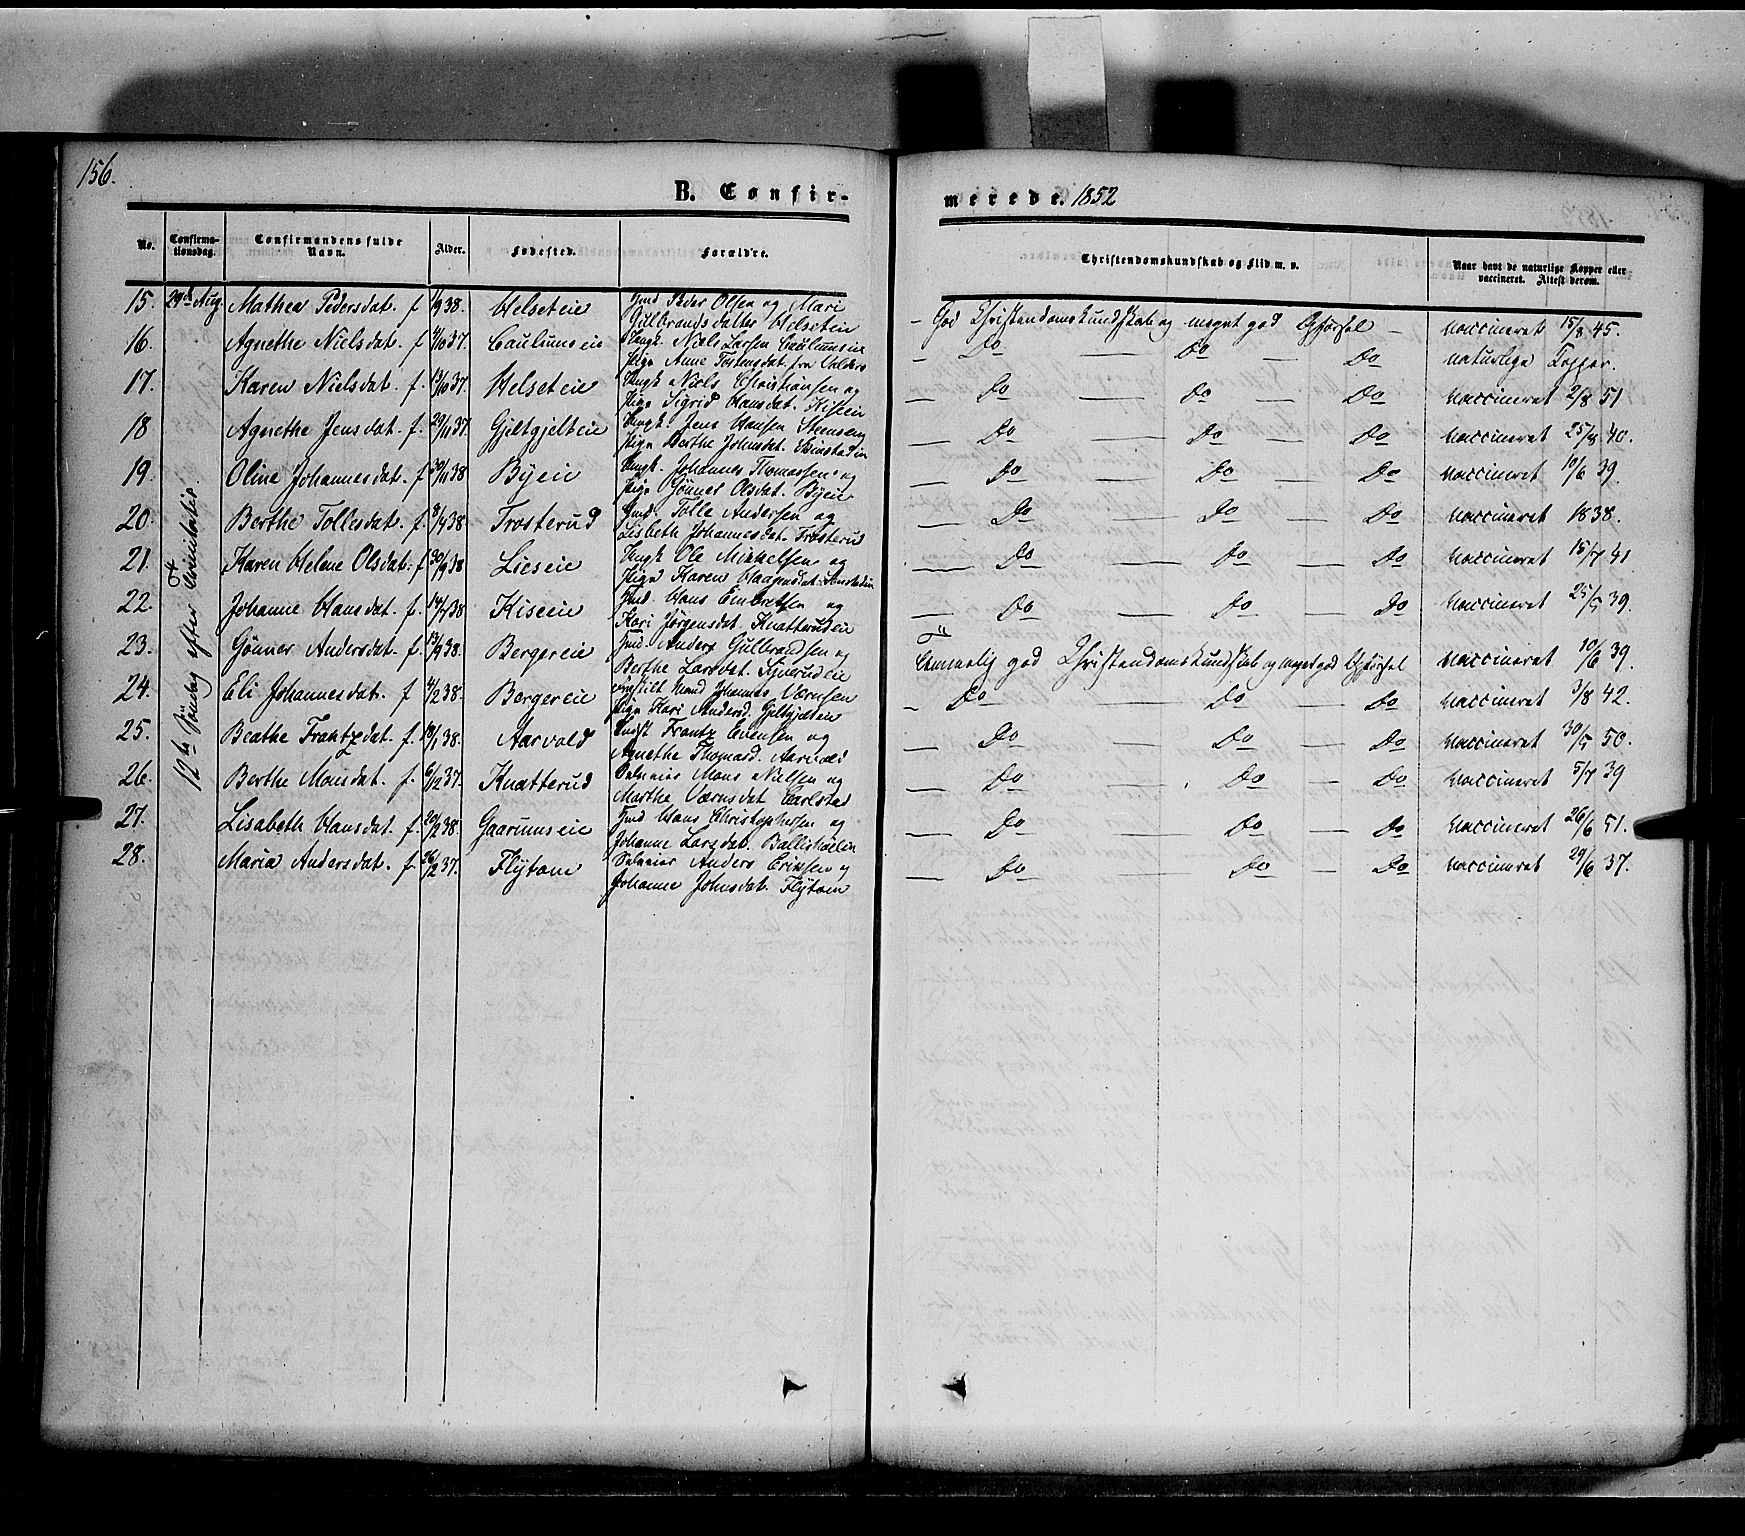 156.
B. Confir-
merede. 1852
No.
Confirma-
tionsdag.
Confirmandens fulde
Navn.
Alder.
Fødested.
Forældre.
Christendomskundskab og Flid m. v.
Naar havt de naturlige Kopper eller
vaccineret. Attest derom.
12te Søndag efter Trinitatis.
15. 29de Aug. Mathea Pedersdat. f 1/9 38. Helseteie Hmd Peder Olsen og Mari
Gulbrandsdatter Helseteie
- God Christendomskundskab og meget god Opførsel - vaccineret 15/8 45.
16. Agnethe Nielsdat. f. 4/10 37. Caulumseie Ungk Niels Larsen Caulumseie
Pige Anne Tostensdat. fra Valders
Do Do Do naturlige Kopper.
17. Karen Nielsdat. f. 13/10 37. Helseteie Ungk Niels Christiansen og
Pige Sigrid Hansdat. Kiseie
Do Do Do vaccineret 2/8 51
18 Agnethe Jensdat. f. 29/11 37. Gjetgjelteie Ungk Jens Hansen
Pige Berthe Johnsdat.
Do Do Do vaccineret 25/8 40.
19. Oline Johannesdat. f 30/11 38 Byeie Ungk. Johannes Thomassen og
Pige Gønner Olsdat. Byeie
Do Do Do vaccineret 10/6 39.
20. Berthe Tollesdat. f. 8/4 38. Frosterud Hmd. Tolle Andersen og
Lisbeth Johannesdat. Frosterud
Do Do Do vaccineret 1838.
21. Karen Helene Olsdat. f 30/9 38 Lieseie Ungk Ole Mikkelsen og
Pige Karen Haagensdat.
Do Do Do vaccineret 15/7 41
22. Johanne Hansdat. f. 14/4 38. Kiseie Hmd. Hans Embretsen og
Kari Jørgensdat. Knatterudeie
Do Do Do vaccineret 25/5 39.
23. Gønner Andersdat. f. 13/9 38. Bergereie Hmd. Anders Gulbrandsen og
Berthe Larsdat.
Temmelig god Christendomskundskab og meget god Opførsel vaccineret 10/6 39.
24. Eli Johannesdat. f 4/2 38. Bergereie Mand Johannes
Pige Kari Andersd.
Do Do Do vaccineret 3/8 42.
25. Beathe Frantzdat. f. 18/1 38. Aarvold Frantz Evensen og
Agnethe Thomasd. Aarvold
Do Do Do vaccineret 30/5 50.
26. Berthe Monsdat. f. 6/12 37. Knatterud Selveier Mons Nielsen og
Marthe Værnsdat. Carlstad
Do Do Do vaccineret 5/7 39
27. Lisabeth Hansdat. f. 20/2 38. Gaarumseie Hmd Hans Christophersen og
Johanne Larsdat.
Do Do Do vaccineret 26/6 51.
28. Maria Andersdat. f. 26/2 37. Flytom Selveier Anders Eriksen og
Johanne Johnsdat. Flytom
Do Do Do vaccineret 29/6 37.